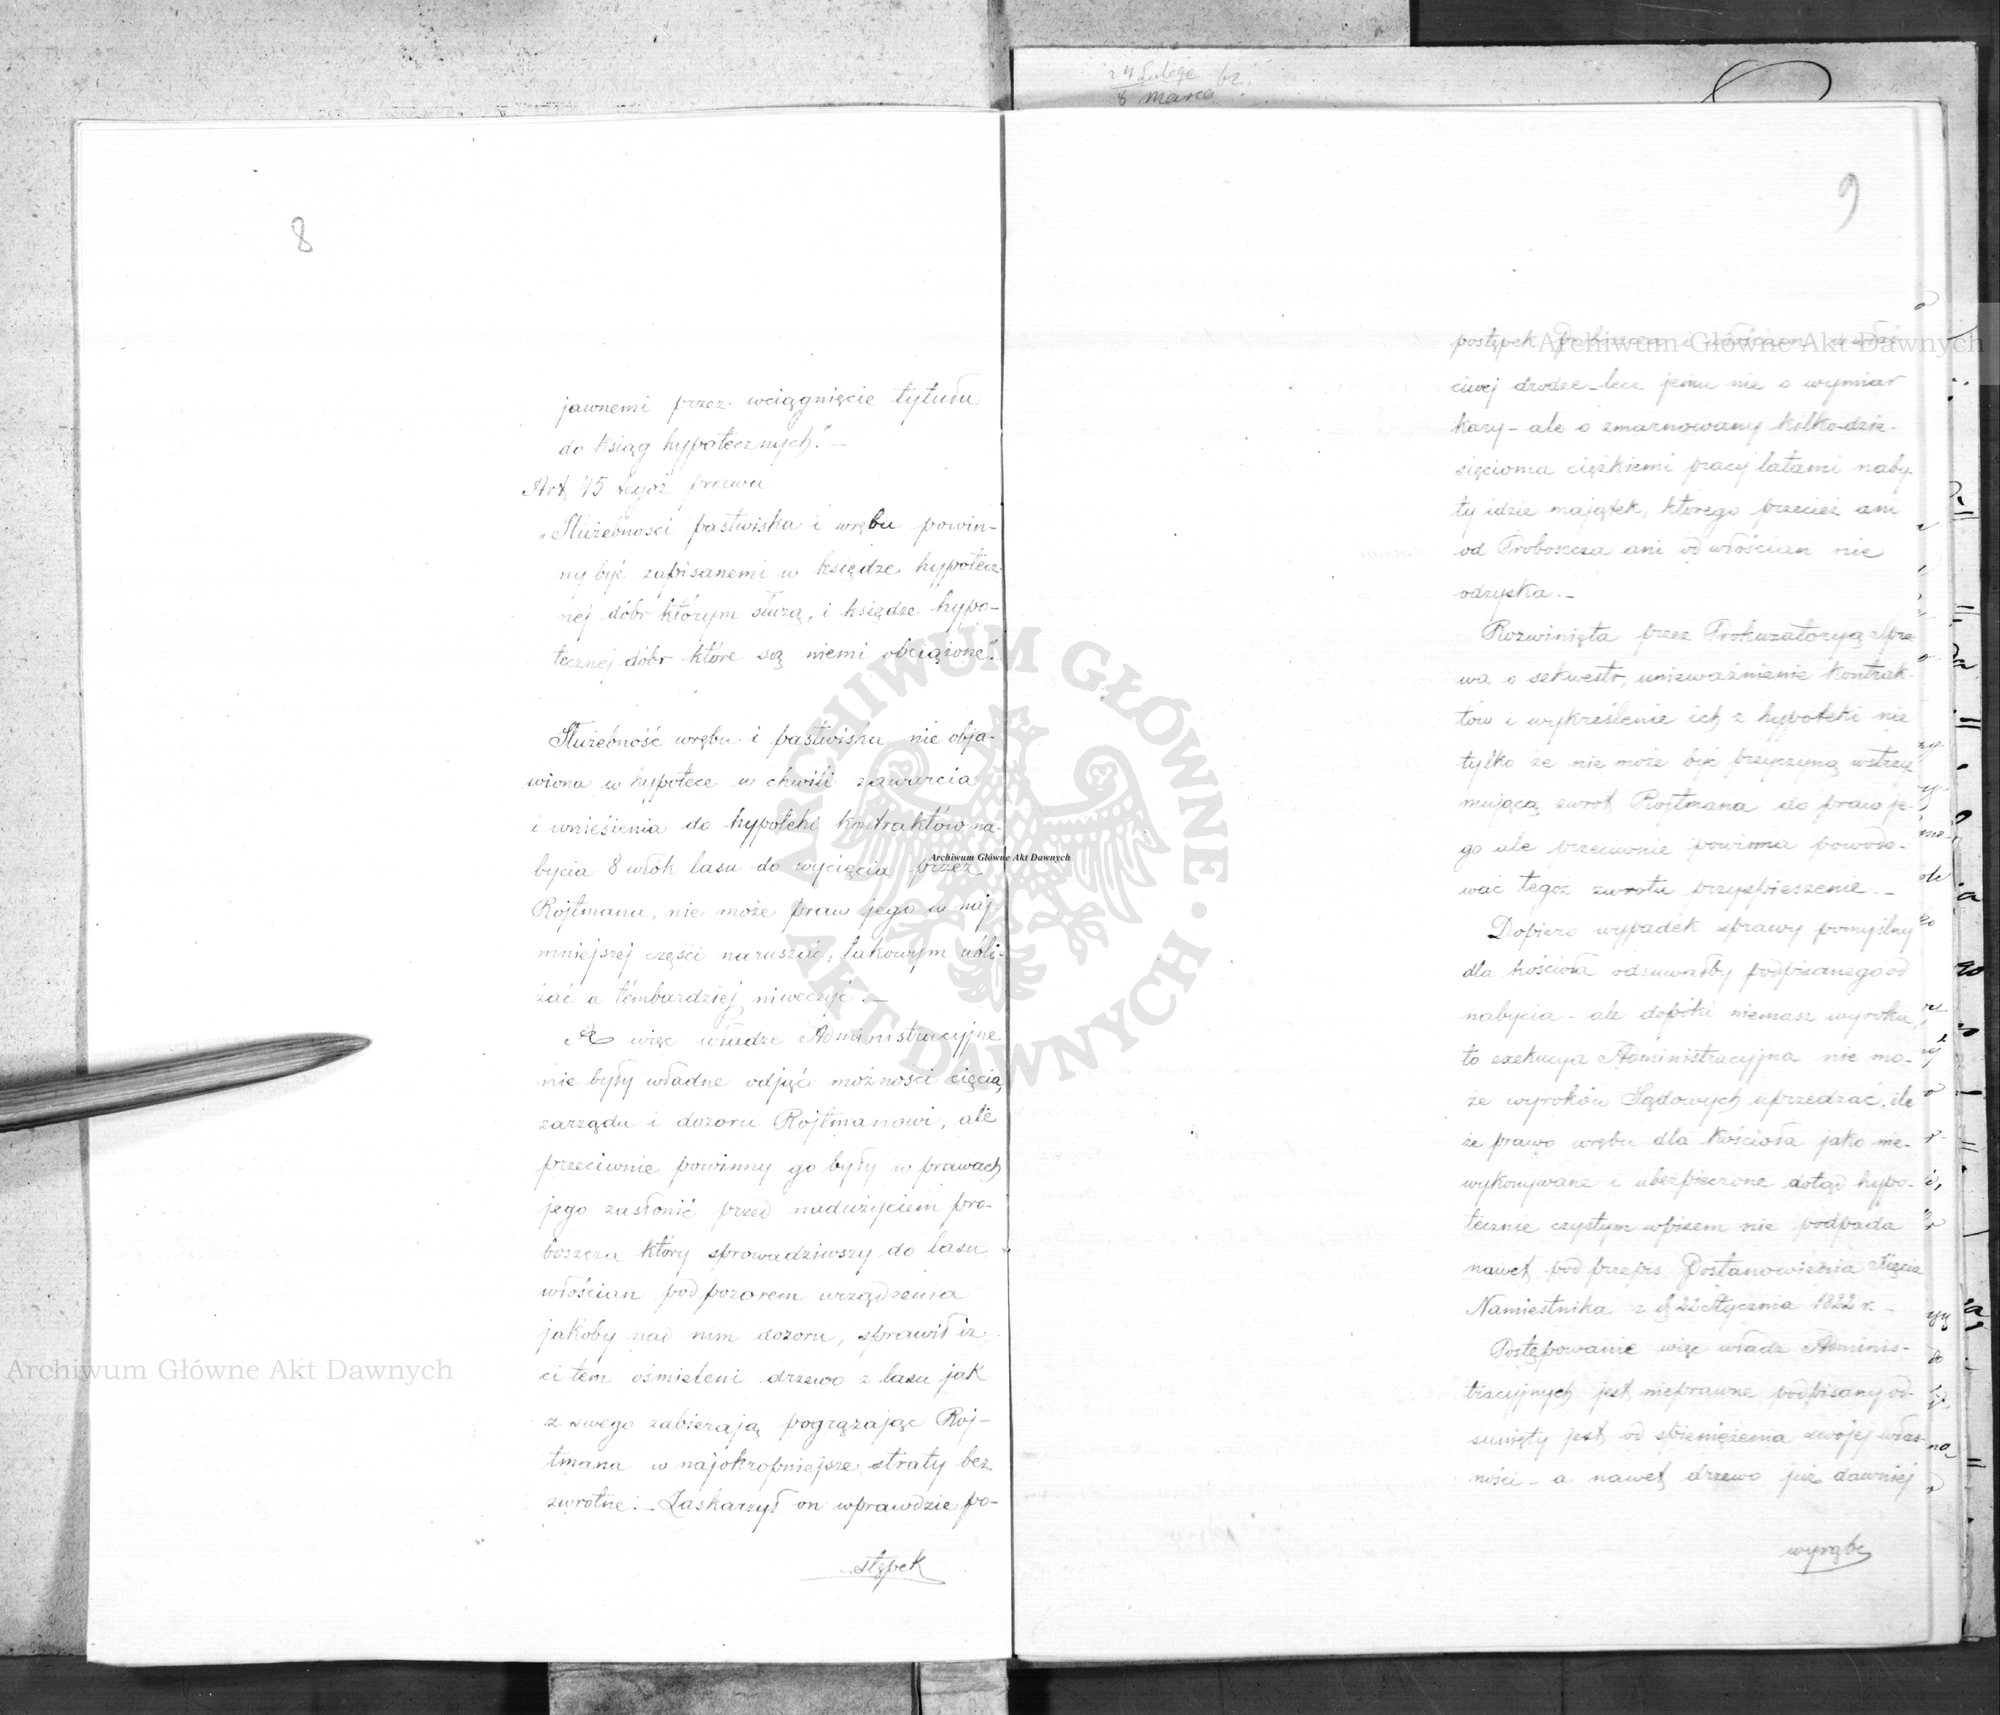 8
jawnemi przez wciągnięcie tytułu
do ksiąg hypotecznych." —
Art. 45 tegoż prawa
„Służebności pastwiska i wrębu powin-
ny być zapisanemi w księdze hypotecz-
nej dóbr którym służą, i księdze hypo-
tecznej dóbr które są niemi obciążone."
Służebność wrębu i pastwiska nie obja-
wiona w hypotece w chwili zawarcia
i wniesienia do hypoteki kontraktów na-
bycia 8 włók lasu do wycięcia przez
Rojtmana, nie może praw jego w naj
mniejszej części naruszać, takowym ubli-
żać a tembardziej niweczyć. —
A więc władze Administracyjne
nie były władne odjąć możności cięcia,
zarządu i dozoru Rojtmanowi, ale
przeciwnie powinny go były w prawach
jego zasłonić przed nadużyciem pro-
boszcza który sprowadziwszy do lasu
włościan pod pozorem urządzenia
jakoby nad nim dozoru, sprawił iż
ci tem ośmieleni drzewo z lasu jak
z swego zabierają pogrążając Roj-
tmana w najokropniejsze straty bez
zwrotne. — Zaskarżył on wprawdzie po-
stępek
24 Lutego
8 Marca br.
9
postępek Proboszcza i włościan we właś-
ciwej drodze – lecz jemu nie o wymiar
kary – ale o zmarnowany kilko-dzie-
sięcioma ciężkiemi pracy latami naby-
ty idzie majątek, którego przecież ani
od Proboszcza ani od włościan nie
odzyska. —
Rozwinięta przez Prokuratoryą spra-
wa o sekwestr, unieważnienie kontrak-
tów i wykreślenie ich z hypoteki nie
tylko że nie może być przyczyną wstrzy
mującą zwrot Rojtmana do praw je-
go ale przeciwnie powinna powodo-
wać tegoż zwrotu przyspieszenie. —
Dopiero wypadek sprawy pomyślny
dla kościoła odsuwałby podpisanego od
nabycia – ale dopóki niemasz wyroku,
to exekucya Administracyjna nie mo-
że wyroków Sądowych uprzedzać, ile
że prawo wrębu dla Kościoła jako nie-
wykonywane i ubezpieczone dotąd hypo-
tecznie czystym wpisem nie podpada
nawet pod przepis Postanowienia Xięcia
Namiestnika z d. 22 Stycznia 1822 r. —
Postępowanie więc władz Adminis-
tracyjnych jest nieprawne podpisany od-
sunięty jest od spieniężenia swojej włas-
ności – a nawet drzewo już dawniej
wyrąbe
Archiwum Główne Akt Dawnych
Archiwum Główne Akt Dawnych
Archiwum Główne Akt Dawnych
ARCHIWUM GŁÓWNE • AKT DAWNYCH